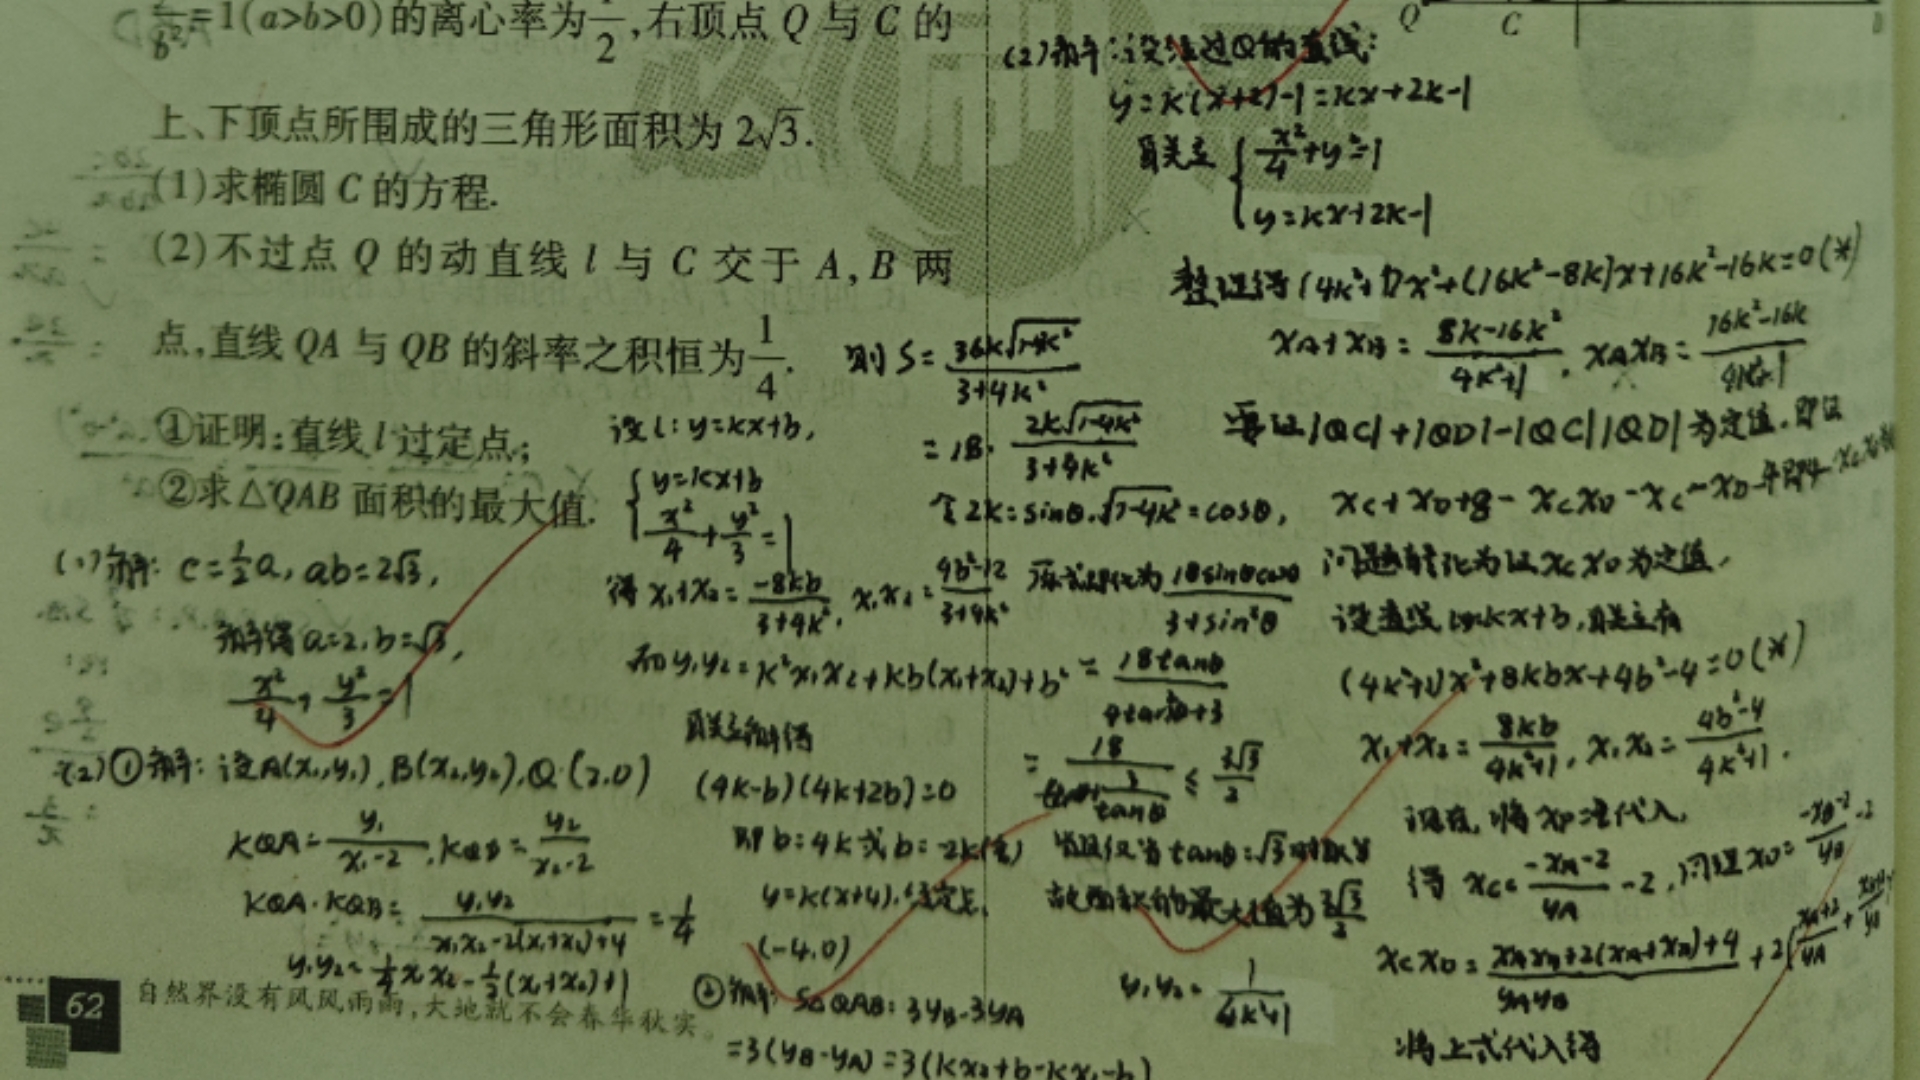 =1(a>b>0)的离心率为1/2,右顶点 Q 与 C 的
上、下顶点所围成的三角形面积为 2√3.
(1)求椭圆 C 的方程.
(2)不过点 Q 的动直线 l 与 C 交于 A,B 两
点,直线 QA 与 QB 的斜率之积恒为1/4.
①证明:直线 l 过定点;
②求△QAB 面积的最大值.
(1)解: c=1/2a, ab=2√3,
解得 a=2, b=√3,
x²/4+y²/3=1
(2)①解: 设A(x₁,y₁),B(x₂,y₂),Q(2,0)
kQA=y₁/(x₁-2),kQB=y₂/(x₂-2)
kQA·kQB=y₁y₂/(x₁x₂-2(x₁+x₂)+4)=1/4
y₁y₂=1/4x₁x₂-1/2(x₁+x₂)+1
设l:y=kx+b,
{y=kx+b
x²/4+y²/3=1
得 x₁+x₂=-8kb/(3+4k²), x₁x₂=(4b²-12)/(3+4k²)
而y₁y₂=k²x₁x₂+kb(x₁+x₂)+b²
联立解得
(4k-b)(4k+2b)=0
即 b=4k 或 b=-2k(舍)
y=k(x+4),过定点
(-4,0)
②解: S△QAB=3yB-3yA
=3(yB-yA)=3(kx₂+b-kx₁-b)
则 S=36k√(1-4k²)/(3+4k²)
=18·2k√(1-4k²)/(3+4k²)
令 2k=sinθ,√(1-4k²)=cosθ,
原式即化为18sinθcosθ/(3+sin²θ)
=18tanθ/(4tan²θ+3)
≤3√3/2
当且仅当tanθ=√3/2时取等
故面积的最大值为3√3/2
y₁y₂=1/(4k²+1)
Q
C
(2)解:设过Q的直线:
y=k(x+2)-1=kx+2k-1
联立{x²/4+y²=1
y=kx+2k-1
整理得(4k²+1)x²+(16k²-8k)x+16k²-16k=0(*)
xA+xB=(8k-16k²)/(4k²+1), xAxB=(16k²-16k)/(4k²+1)
要证|QC|+|QD|-|QC||QD|为定值,即证
xC+xD+8-xCxD-xC-xD
问题转化为证xCxD为定值,
设直线y=kx+b,联立有
(4k²+1)x²+8kbx+4b²-4=0(*)
x₁+x₂=8kb/(4k²+1), x₁x₂=(4b²-4)/(4k²+1).
代入,
得 xC=(-xA-2)/yA-2,同理xD=(-xB-2)/yB-2
xCxD=(xAxB+2(xA+xB)+4)/yAyB+2((xA+2)/yA+
将上式代入得
62
自然界没有风风雨雨,大地就不会春华秋实。